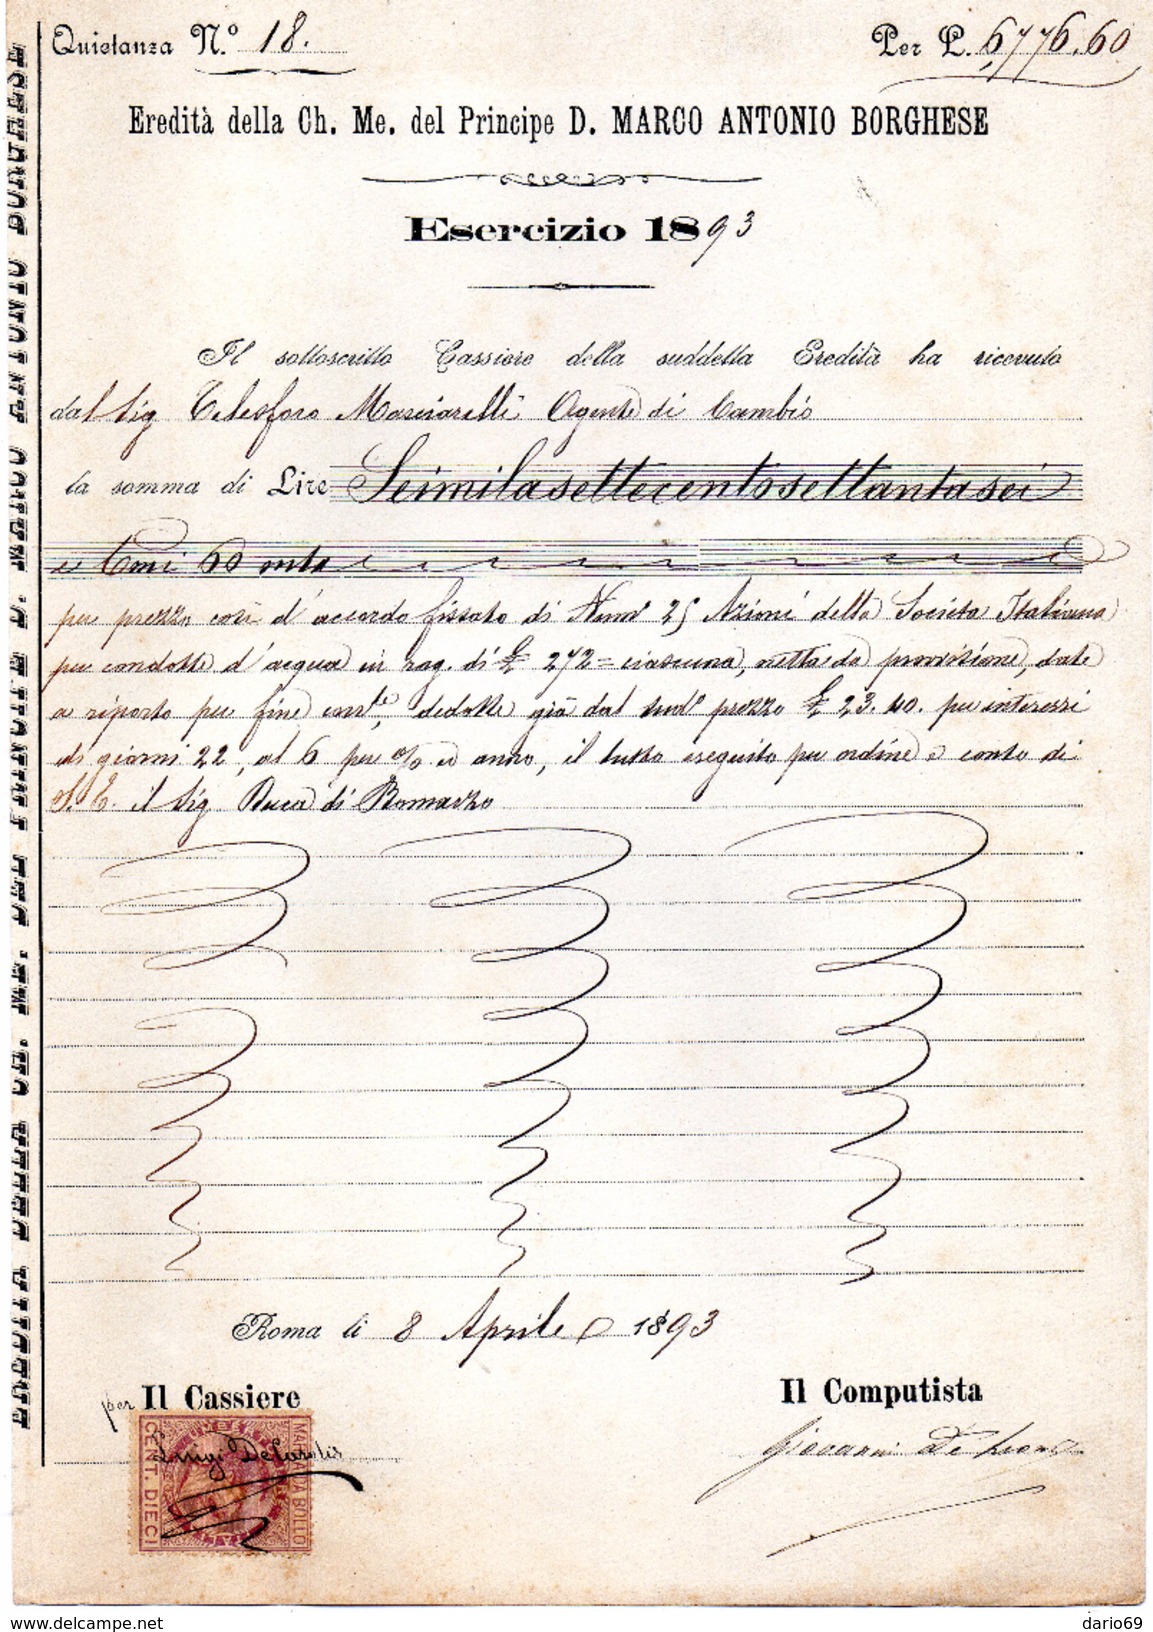 Quietanza N.° 18.
Per L. 6,776.60
Eredità della Ch. Me. del Principe D. MARCO ANTONIO BORGHESE
Esercizio 1893
Il sottoscritto Cassiere della suddetta Eredità ha ricevuto
dal Sig Telesforo Masciarelli Agente di Cambio
la somma di Lire Seimilasettecentosettantasei
e Cmi 60
per prezzo così d'accordo fissato di Num° 25 Azioni della Società Italiana
per condotte d'acqua in rag. di £ 272= ciascuna, netta da provvisione, date
a riporto per fine dedotte già dal sud° prezzo £ 23.40. per interessi
di giorni 22, al 6 per % ed anno, il tutto eseguito per ordine e conto di
S. E. il Sig Duca di Bomarzo
Roma li 8 Aprile 1893
per Il Cassiere
Il Computista
Luigi DeCarolis
Giovanni De
UMBERTO
MARCA DA BOLLO
CENT. DIECI
EREDITÀ DELLA CH. ME. DEL PRINCIPE D. MARCO ANTONIO BORGHESE
www.delcampe.net
dario69